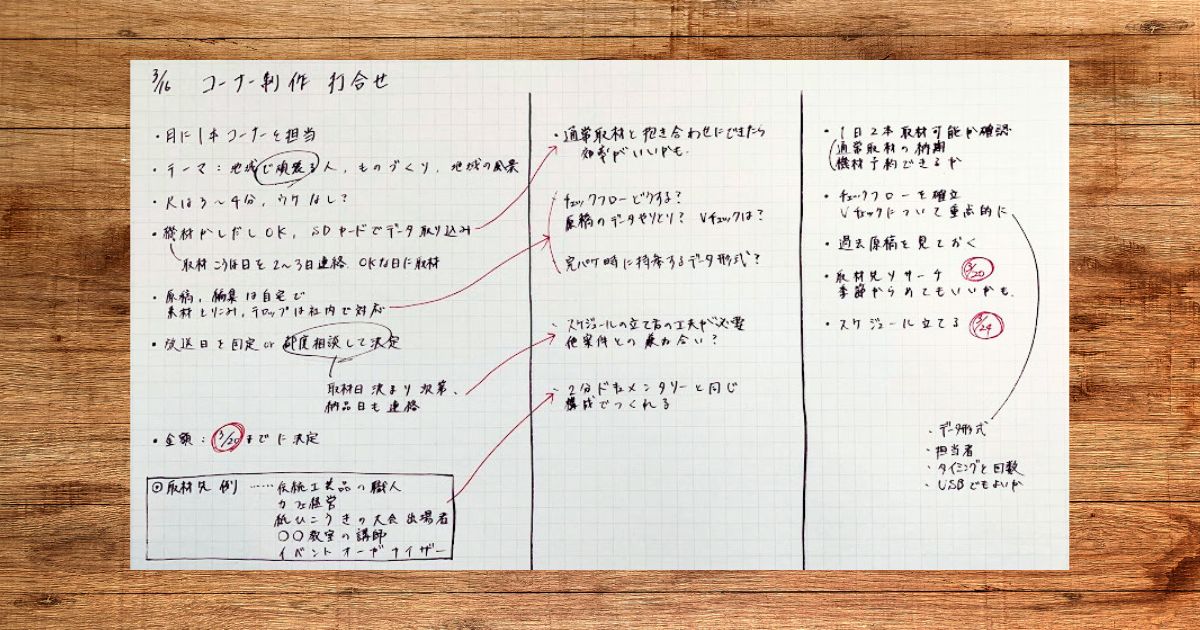 3/16 コーナー制作 打合せ
・月に1本コーナーを担当
・テーマ：地域で頑張る人，ものづくり，地域の風景
・尺は3〜4分，ウケなし？
・機材かしだしOK，SDカードでデータ取り込み
取材こうほ日を2〜3日連絡．OKな日に取材
・原稿，編集は自宅で
素材とりこみ，テロップは社内で対応
・放送日を固定or都度相談して決定
取材日決まり次第、
納品日も連絡
・金額：3/20までに決定
◎取材先 例）……伝統工芸品の職人
カフェ経営
紙ひこうきの大会出場者
○○教室の講師
イベントオーガナイザー
・通常取材と抱き合わせにできたら
効率がいいかも．
・チェックフローどうする？
原稿のデータやりとり？ Vチェックは？
完パケ時に持参するデータ形式？
・スケジュールの立て方の工夫が必要
他案件との兼ね合い？
・2分ドキュメンタリーと同じ
構成でつくれる
・1日2本取材可能か確認
通常取材の納期
機材予約できるか
・チェックフローを確立
Vチェックについて重点的に
・過去原稿を見ておく
・取材先リサーチ 3/20
季節からめてもいいかも．
・スケジュール立てる 3/24
・データ形式
・担当者
・タイミングと回数
・USBでもよいか